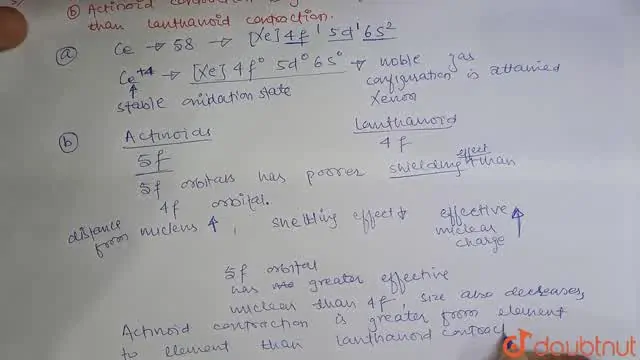 (b) Actinoid contraction is g
than lanthanoid contraction.
(a) Ce → 58 → [Xe] 4f¹ 5d¹ 6s²
Ce⁺⁴ → [Xe] 4f⁰ 5d⁰ 6s⁰ → noble gas
configuration is attained
↑
stable oxidation state
Xenon
(b) Actinoids Lanthanoid
5f 4f
5f orbitals has poorer shielding effect than
4f orbital.
distance from nucleus ↑, shielding effect ↓ effective nuclear charge ↑
5f orbital
has greater effective
nuclear than 4f, size also decreases,
Actinoid contraction is greater from element
to element than lanthanoid contrac
doubtnut